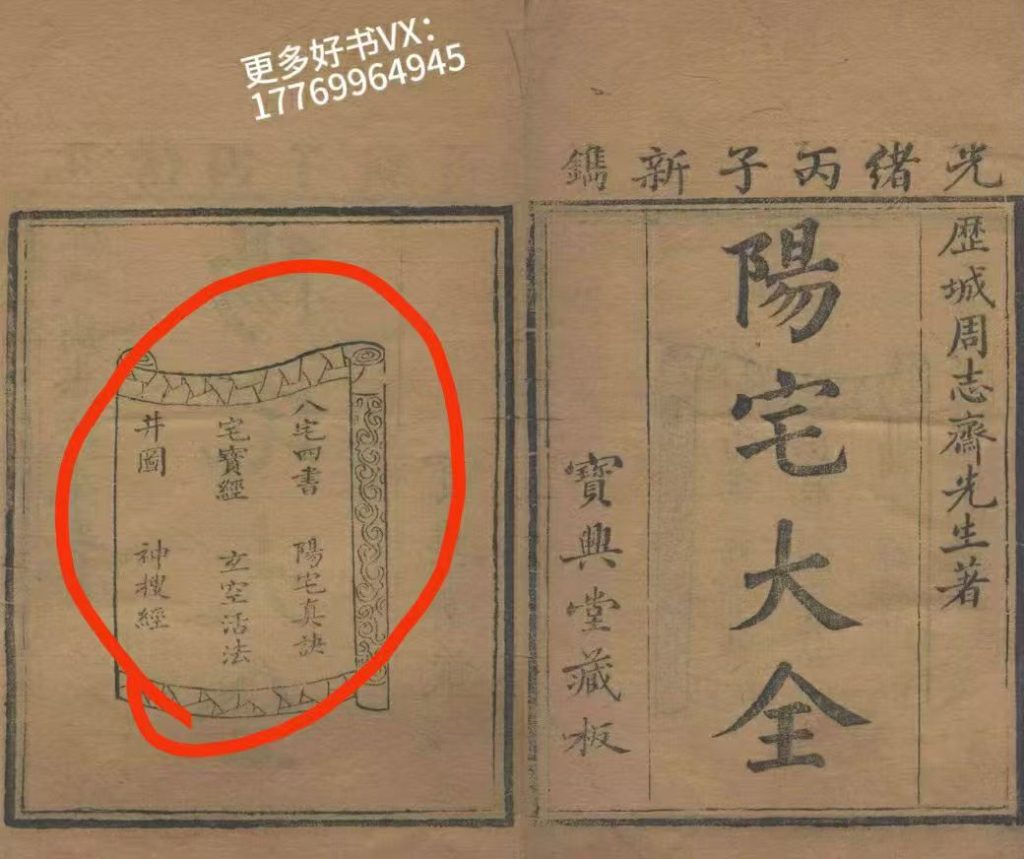 更多好书VX：
17769964945
光緒丙子新鐫
歷城周志齋先生著
陽宅大全
寶興堂藏板
八宅四書 陽宅真訣
宅寶經 玄空活法
井圖 神搜經